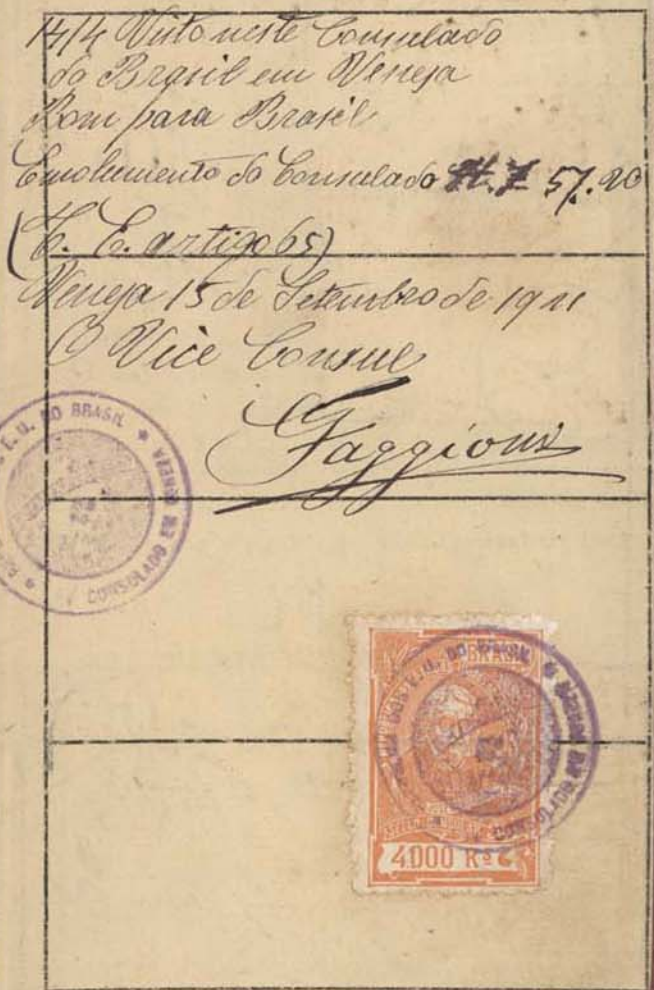 Visto neste Consulado
do Brasil em Veneza
Bom para Brasil
Emolumento do Consulado 57.20
artigo 65)
Veneza 15 de Setembro de
O Vice Consul
Faggioni
E. U. DO BRASIL * CONSULADO EM VENEZA
DO BRASIL
CONSUL
BRASIL
4000 Rs